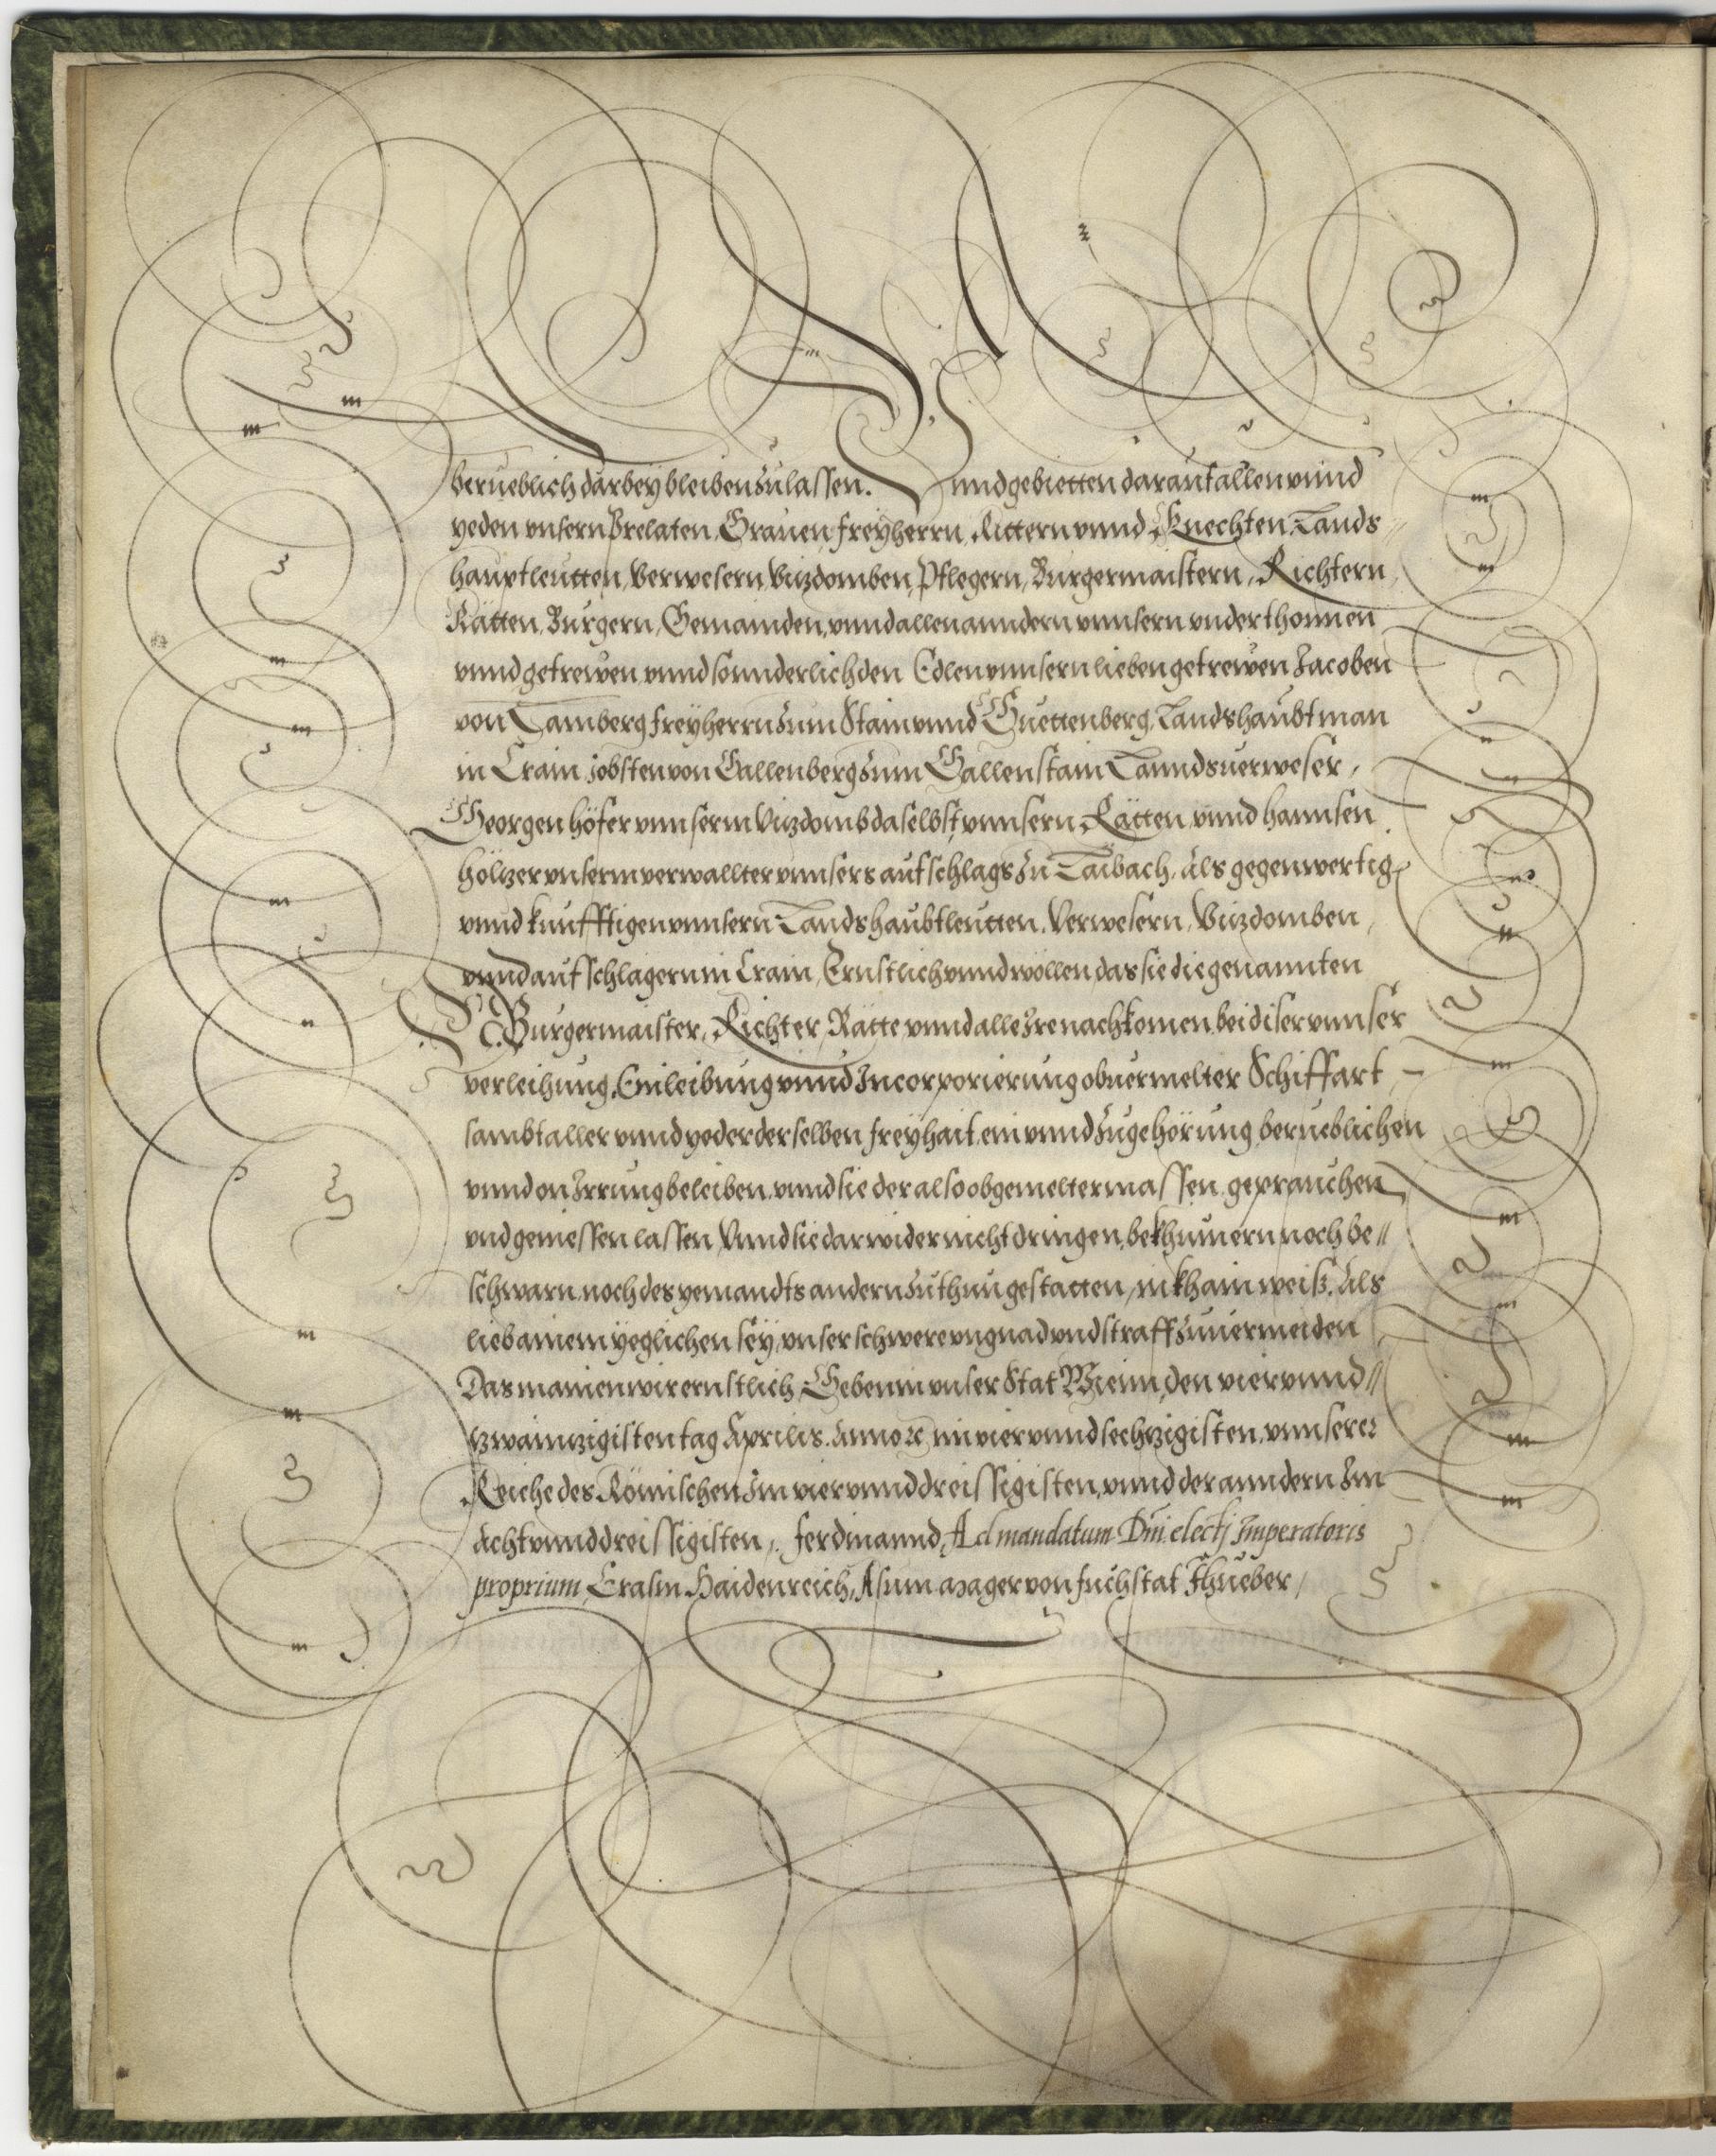 berueblich darbeÿ bleiben zulassen. Unnd gebietten darauf allen vnnd
yeden vnsern Prelaten, Grauen, freÿherrn, Rittern vnnd Knechten, Lands⸗
hauptleutten, Verwesern, Vitzdomben, Pflegern, Burgermaistern, Richtern,
Rätten, Burgern, Gemainden, vnnd allen anndern vnnsern vnderthonnen
vnnd getrewen, vnnd sonnderlich den Edlen vnnsern lieben getrewen Jacoben
von Lamberg freÿherrn zum Stain vnnd Guettenberg, Landshaubtman
in Crain, Jobsten von Gallenberg zum Gallenstain Lanndsuerweser,
Georgen höfer vnnserm Vitzdomb daselbst, vnnsern Rätten, vnnd hannsen
höltzer vnserm verwallter vnnsers aufschlags zu Laibach, als gegenwertig
vnnd kunfftigen vnnsern Landshaubtleutten, Verwesern, Vitzdomben,
vnnd aufschlagern in Crain, Ernstlich vnnd wöllen, das sie die genannten
N. Burgermaister, Richter, Rätte vnnd alle Ire nachkomen, bei diser vnnser
verleihung, Einleibung vnnd Incorporierung obuermelter Schiffart
sambt aller vnnd yeder derselben freyhait, ein vnnd zugehörung, berueblichen
vnnd on Irrung beleiben, vnnd sie der also obgemeltermassen, geprauchen
vnd geniessen lassen, Vnnd sie darwider nicht dringen, bekhümern noch be⸗
schwarn, noch des yemandts andern zuthun gestatten, in khain weiß, Als
lieb ainem yeglichen seÿ, vnser schwere vngnad vnd straff zuuermeiden
Das mainen wir ernstlich, Geben in vnser Stat Wienn, den vier vnnd⸗
zwaintzigisten tag Aprilis. Anno ꝛc im vier vnnd sechtzigisten, vnnserer
Reiche des Römischen Im vier vnnd dreissigisten, vnnd der anndern Im
Acht vnnd dreissigisten, Ferdinannd, Ad mandatum Dni electj Imperatoris
proprium, Erasm Haidenreich, A sum Mager von fuchstat Thüeber,